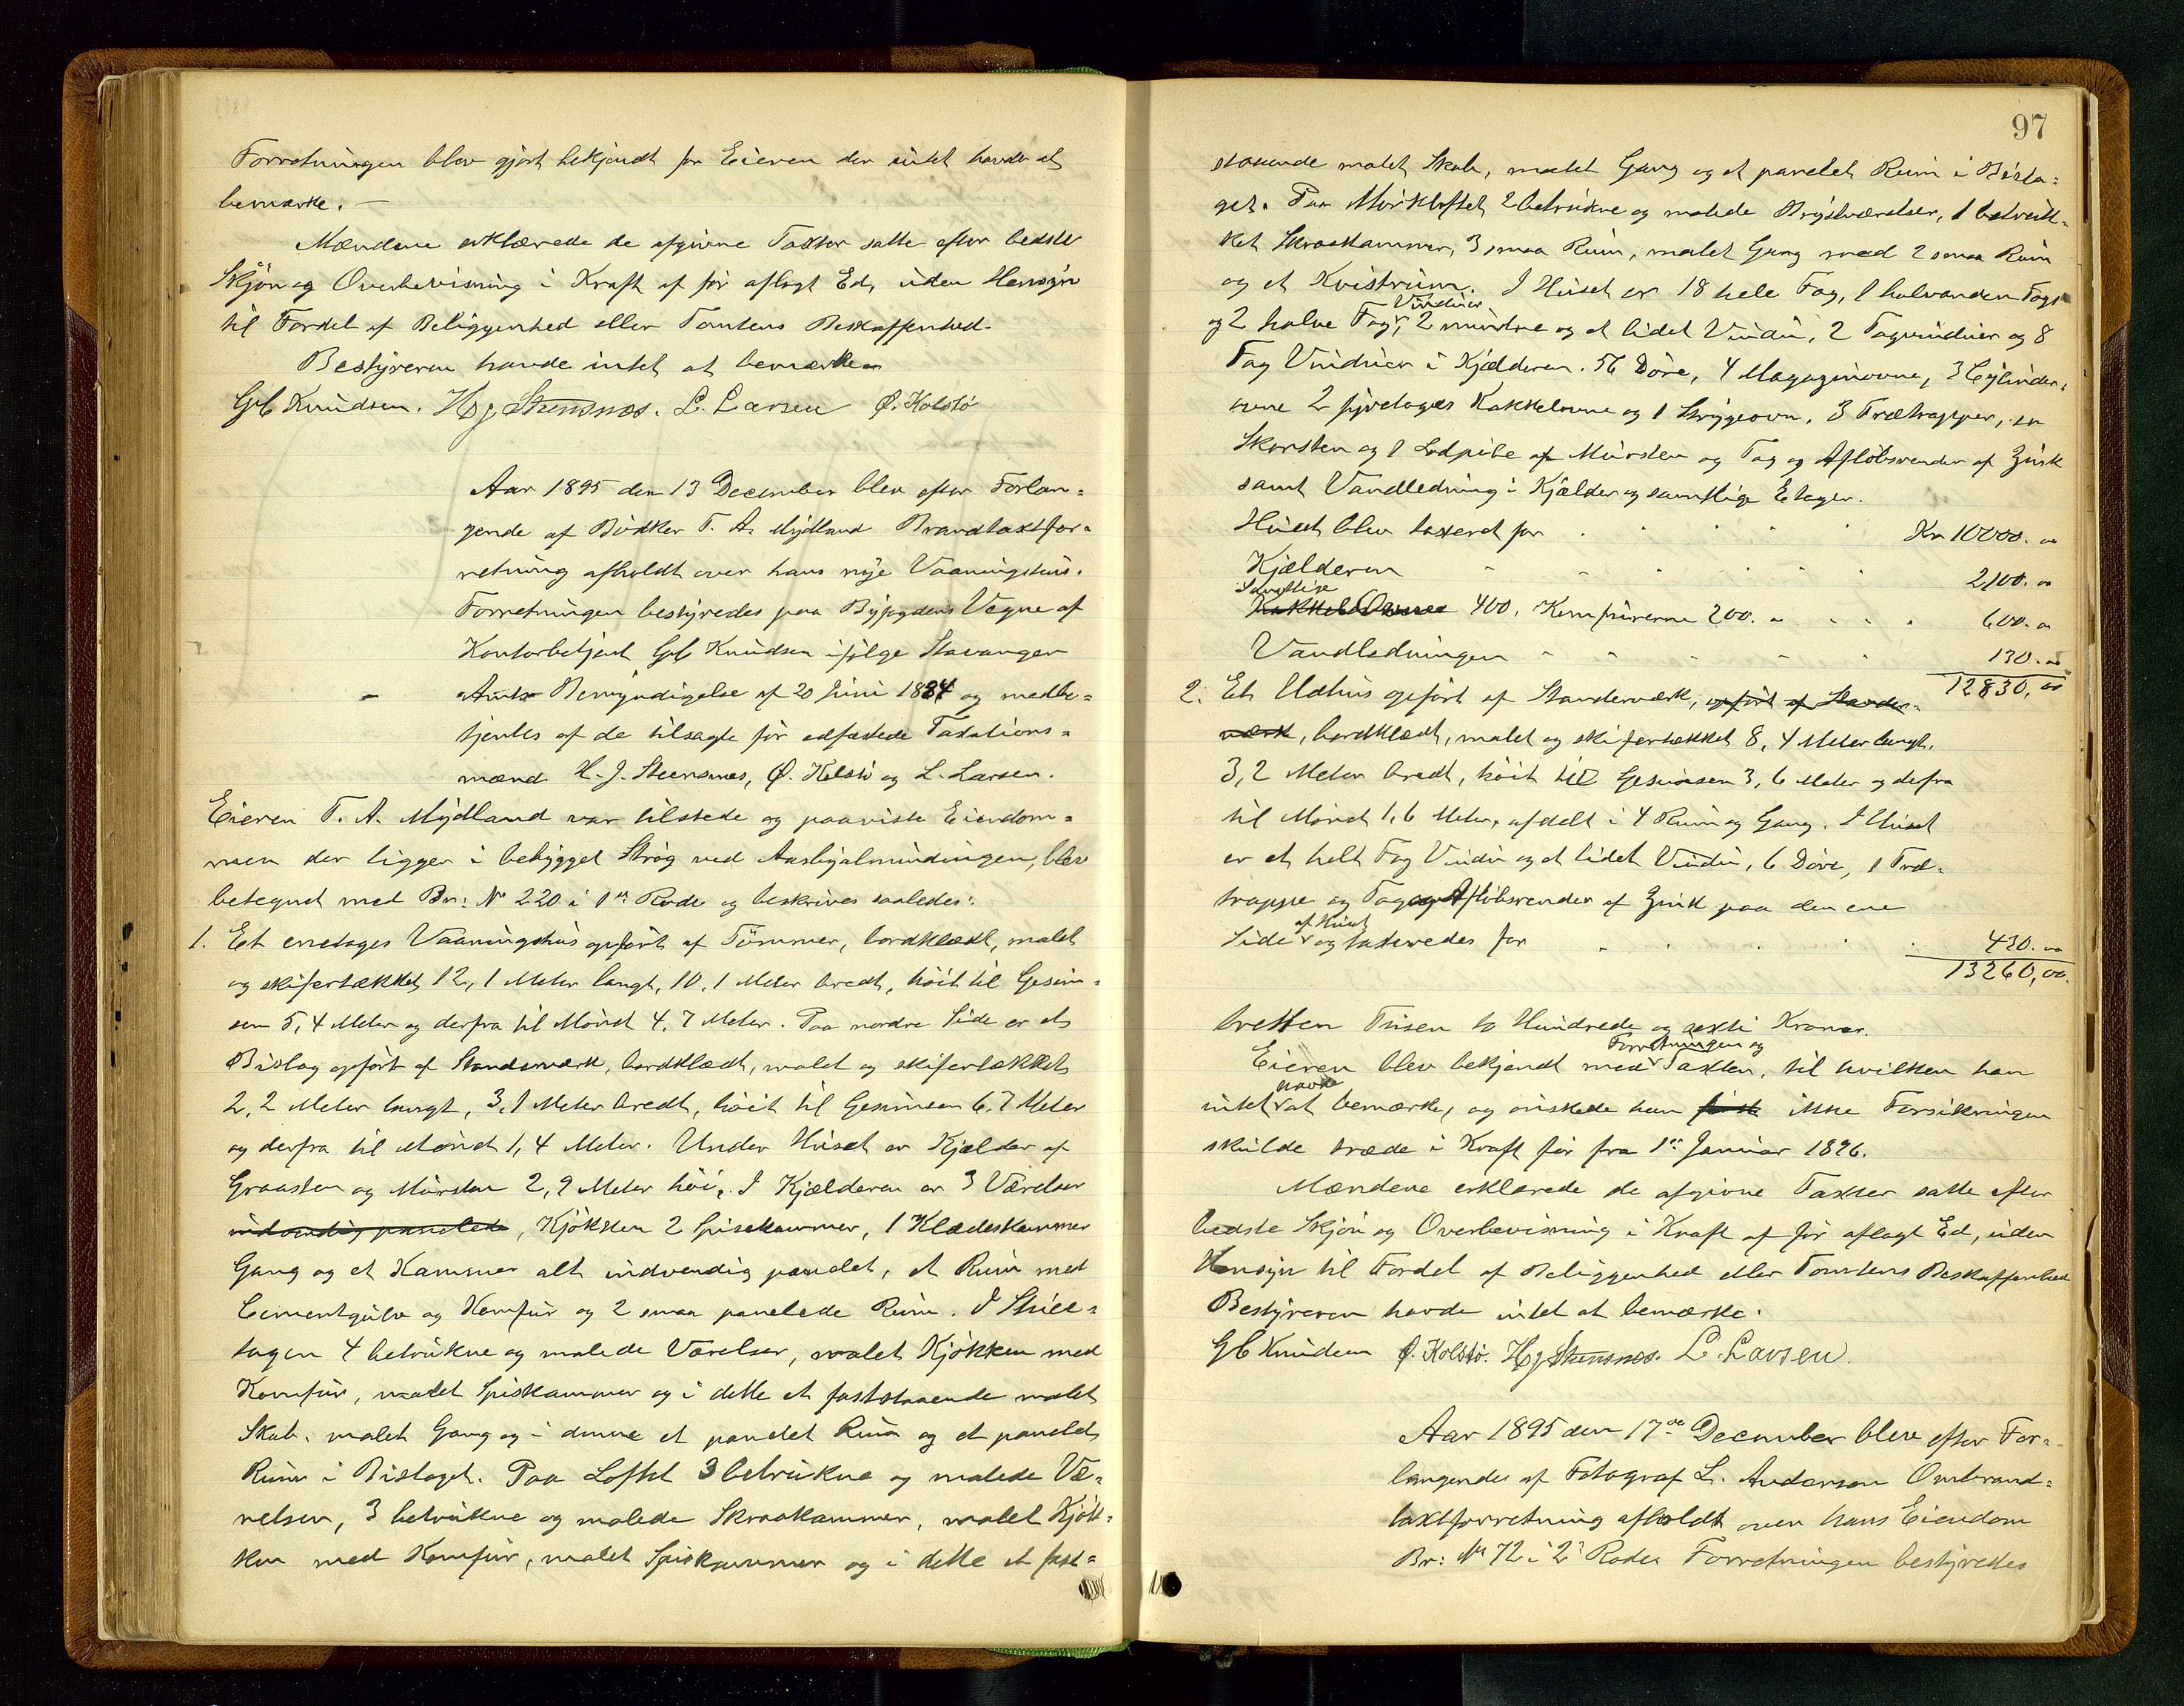 Forretningen blev gjort bekjendt for Eieren der intet havde at
bemærke. —
Mændene erklærede de afgivne Taxter satte efter bedste
Skjön og Overbevisning i Kraft af før aflagt Ed, uden Hensyn
til Fordel af Beliggenhed eller Tomtens Beskaffenhed.
Bestyreren havde intet at bemærke
G. Knudsen. H J Steensnæs. L. Larsen Ø. Kolstö
Aar 1895 den 13 December blev efter Forlan=
gende af Bödker T. A. Mydland Brandtaxtfor=
retning afholdt over hans nye Vaaningshus.
Forretningen bestyredes paa Byfogdens Vegne af
Kontorbetjent G Knudsen ifølge Stavanger
Amts Bemyndigelse af 20 Juni 1884 og medbe=
tjentes af de tilsagte før edfæstede Taxations=
mænd H. J. Steensnæs, Ø. Kolstö og L. Larsen.
Eieren T. A. Mydland var tilstede og paaviste Eiendom=
men der ligger i bebygget Strög ved Aashjalmundingen, blev
betegnet med Br: No 220 i 1ste Rode og beskrives saaledes:
1. Et enetages Vaaningshus opført af Tömmer, bordklædt, malet
og skifertækket 12,1 Meter langt, 10,1 Meter bredt, höit til Gesim=
sen 5,4 Meter og derfra til Mönet 4,7 Meter. Paa nordre Side er et
Bislag opført af Standerværk, bordklædt, malet og skifertækket
2,2 Meter langt, 3,1 Meter bredt, höit til Gesimsen 6,7 Meter
og derfra til Mönet 1,4 Meter. Under Huset er Kjælder af
Graasten og Mursten 2,9 Meter höi. I Kjælderen er 3 Værelser
indvendig panelede, Kjökken 2 Spisekammer, 1 Klædeskammer
Gang og et Kammer alt indvendig panelet, et Rum med
Cementgulv og Komfur og 2 smaa panelede Rum. I Stue=
tagen 4 betrukne og malede Værelser, malet Kjökken med
Komfur, malet Spiskammer og i dette et faststaaende malet
Skab, malet Gang og i denne et panelet Rum og et panelet
Rum i Bislaget. Paa Loftet 3 betrukne og malede Væ=
relser, 3 betrukne og malede Skraakammer, malet Kjök=
ken med Komfur, malet Spiskammer og i dette et fast=
97
staaende malet Skab, malet Gang og et panelet Rum i Bisla=
get. Paa Mörkloftet 2 betrukne og malede Kvistværelser, 1 betruk=
ket Skraakammer, 3 smaa Rum, malet Gang med 2 smaa Rum
og et Kvistrum. I Huset er 18 hele Fag, 1 halvanden Fags
Vinduer
og 2 halve Fag, 2 mindre og et lidet Vindu, 2 Tagvinduer og 8
Fag Vinduer i Kjælderen. 56 Döre, 4 Magazinovne, 3 Cylinder=
ovne 2 fyretages Kakkelovne og 1 Strygeovn, 3 Trætrapper, en
Skorsten og 1 Lodpibe af Mursten og Tag og Aflöbsrender af Zink
samt Vandledning i Kjælder og samtlige Etager.
Huset blev taxeret for Kr 10000. 00
Kjælderen 2100. 00
Samtlige
Kakkel Ovne 400, Komfurerne 200. 600. 00
Vandledningen 130. 00
12830, 00
2. Et Udhus opført af Standerværk, opført af Stander=
værk, bordklædt, malet og skifertækket 8,4 Meter langt.
3,2 Meter bredt, höit til Gesimsen 3,6 Meter og derfra
til Mönet 1,6 Meter, afdelt i 4 Rum og Gang. I Huset
er et helt Fag Vindu og et lidet Vindu, 6 Döre, 1 Træ=
trappe og Tag og Aflöbsrender af Zink paa den ene
af Huset
Side og taxeredes for 430. 00
13260,00.
tretten Tusen to Hundrede og sexti Kroner.
Forretningen og
Eieren blev bekjendt med Taxten, til hvilken han
havde
intet at bemærke, og önskede han först ikke Forsikringen
skulde træde i Kraft før fra 1ste Januar 1896.
Mændene erklærede de afgivne Taxter satte efter
bedste Skjön og Overbevisning i Kraft af før aflagt Ed, uden
Hensyn til Fordel af Beliggenhed eller Tomtens Beskaffenhed
Bestyreren havde intet at bemærke.
G Knudsen Ø. Kolstö. H J Steensnæs. L. Larsen.
Aar 1895 den 17de December blev efter For=
langendes af Fotograf L. Andersen Ombrand=
taxtforretning afholdt over hans Eiendom
Br: No 72 i 2 Rode. Forretningen bestyredes